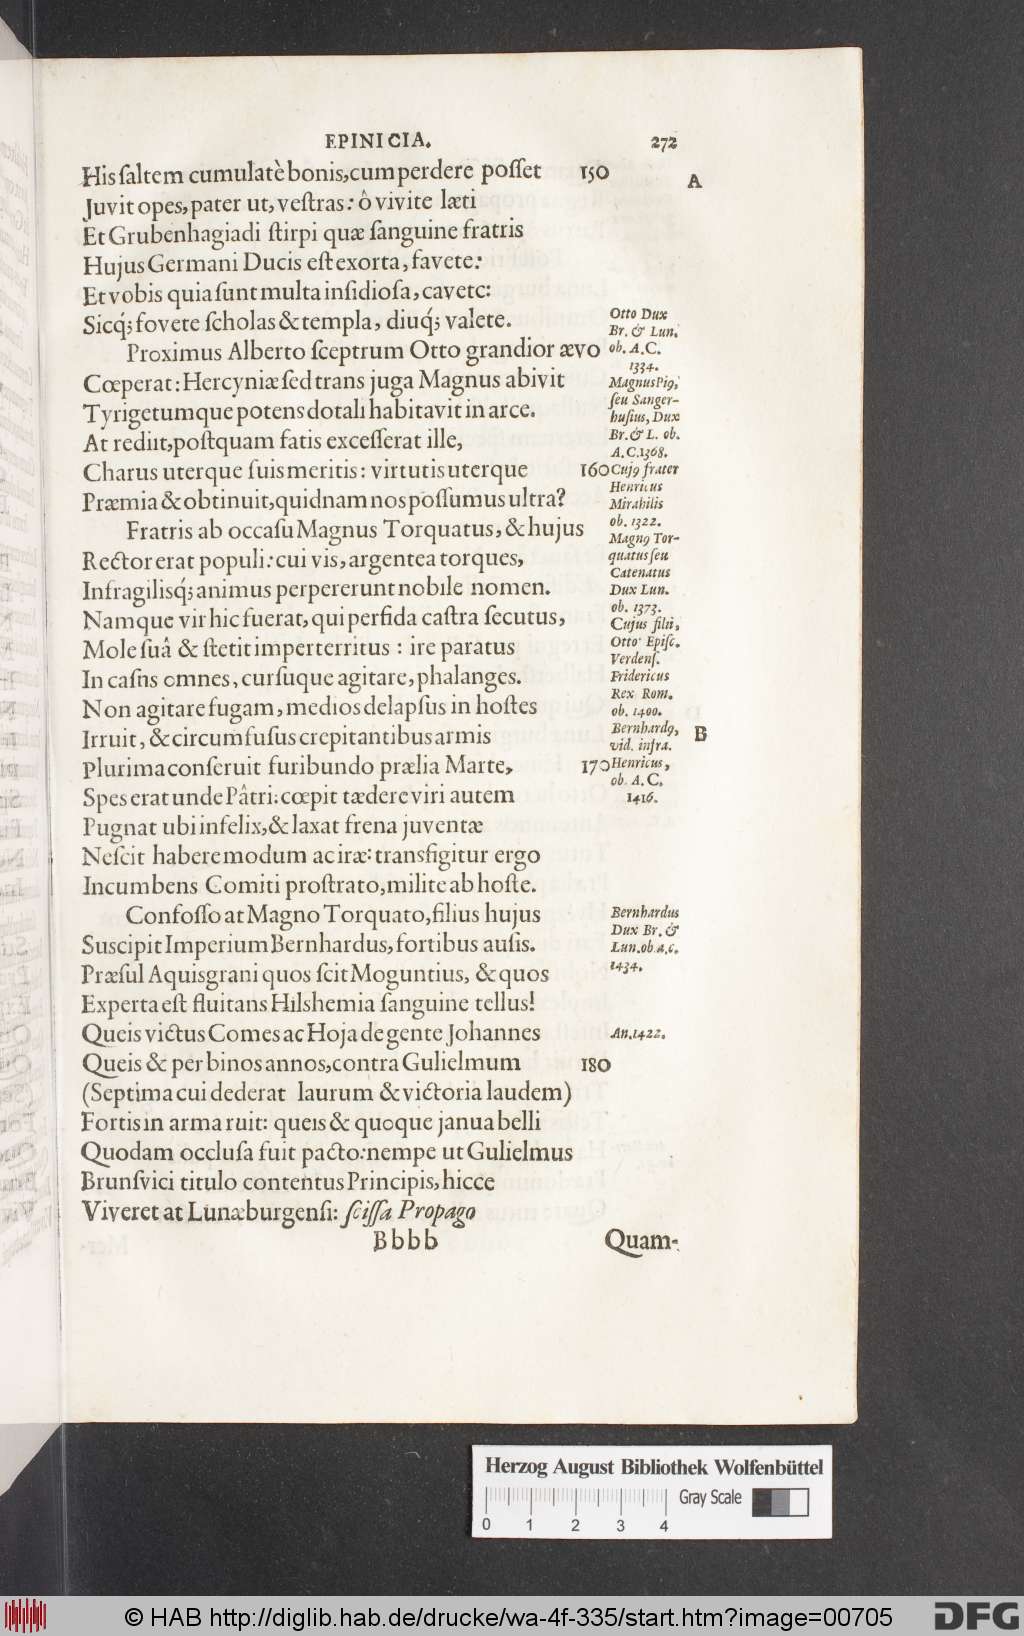 EPINICIA. 272
His ſaltem cumulatè bonis, cum perdere poſſet 150
A
Juvit opes, pater ut, veſtras: ô vivite læti
Et Grubenhagiadi ſtirpi quæ ſanguine fratris
Hujus Germani Ducis eſt exorta, favete:
Et vobis quia ſunt multa inſidioſa, cavete:
Sicq́; fovete ſcholas & templa, diuq́; valete.
Proximus Alberto ſceptrum Otto grandior ævo
Cœperat: Hercyniæ ſed trans juga Magnus abivit
Tyrigetumque potens dotali habitavit in arce.
At rediit, poſtquam fatis exceſſerat ille,
Charus uterque ſuis meritis: virtutis uterque 160
Præmia & obtinuit, quidnam nos poſſumus ultra?
Fratris ab occaſu Magnus Torquatus, & hujus
Rector erat populi: cui vis, argentea torques,
Infragilisq́; animus perpererunt nobile nomen.
Namque vir hic fuerat, qui perfida caſtra ſecutus,
Mole ſuâ & ſtetit imperterritus : ire paratus
In caſus omnes, curſuque agitare, phalanges.
Non agitare fugam, medios delapſus in hoſtes
Irruit, & circumfuſus crepitantibus armis
Plurima conſeruit furibundo prælia Marte, 170
Spes erat unde Pâtri: cœpit tædere viri autem
Pugnat ubi infelix, & laxat frena juventæ
Neſcit habere modum ac iræ: transfigitur ergo
Incumbens Comiti proſtrato, milite ab hoſte.
Confoſſo at Magno Torquato, filius hujus
Suscipit Imperium Bernhardus, fortibus auſis.
Præſul Aquisgrani quos ſcit Moguntius, & quos
Experta eſt fluitans Hilshemia ſanguine tellus!
Queis victus Comes ac Hoja de gente Johannes
Queis & per binos annos, contra Gulielmum 180
(Septima cui dederat laurum & victoria laudem)
Fortis in arma ruit: queis & quoque janua belli
Quodam occluſa fuit pacto: nempe ut Gulielmus
Brunſvici titulo contentus Principis, hicce
Viveret at Lunæburgenſi: ſciſſa Propago
Bbbb Quam-
Otto Dux
Br. & Lun.
ob. A.C.
1334.
Magnus Pi9,
ſeu Sanger-
huſius, Dux
Br. & L. ob.
A.C. 1368.
Cuj9 frater
Henricus
Mirabilis
ob. 1322.
Magn9 Tor-
quatus ſeu
Catenatus
Dux Lun.
ob. 1373.
Cujus filii,
Otto Epiſc.
Verdenſ.
Fridericus
Rex Rom.
ob. 1400.
Bernhard9,
vid. infra.
B
Henricus,
ob. A.C.
1416.
Bernhardus
Dux Br. &
Lun. ob. A.C.
1434.
An. 1422.
Herzog August Bibliothek Wolfenbüttel
Gray Scale
0 1 2 3 4
© HAB http://diglib.hab.de/drucke/wa-4f-335/start.htm?image=00705
DFG